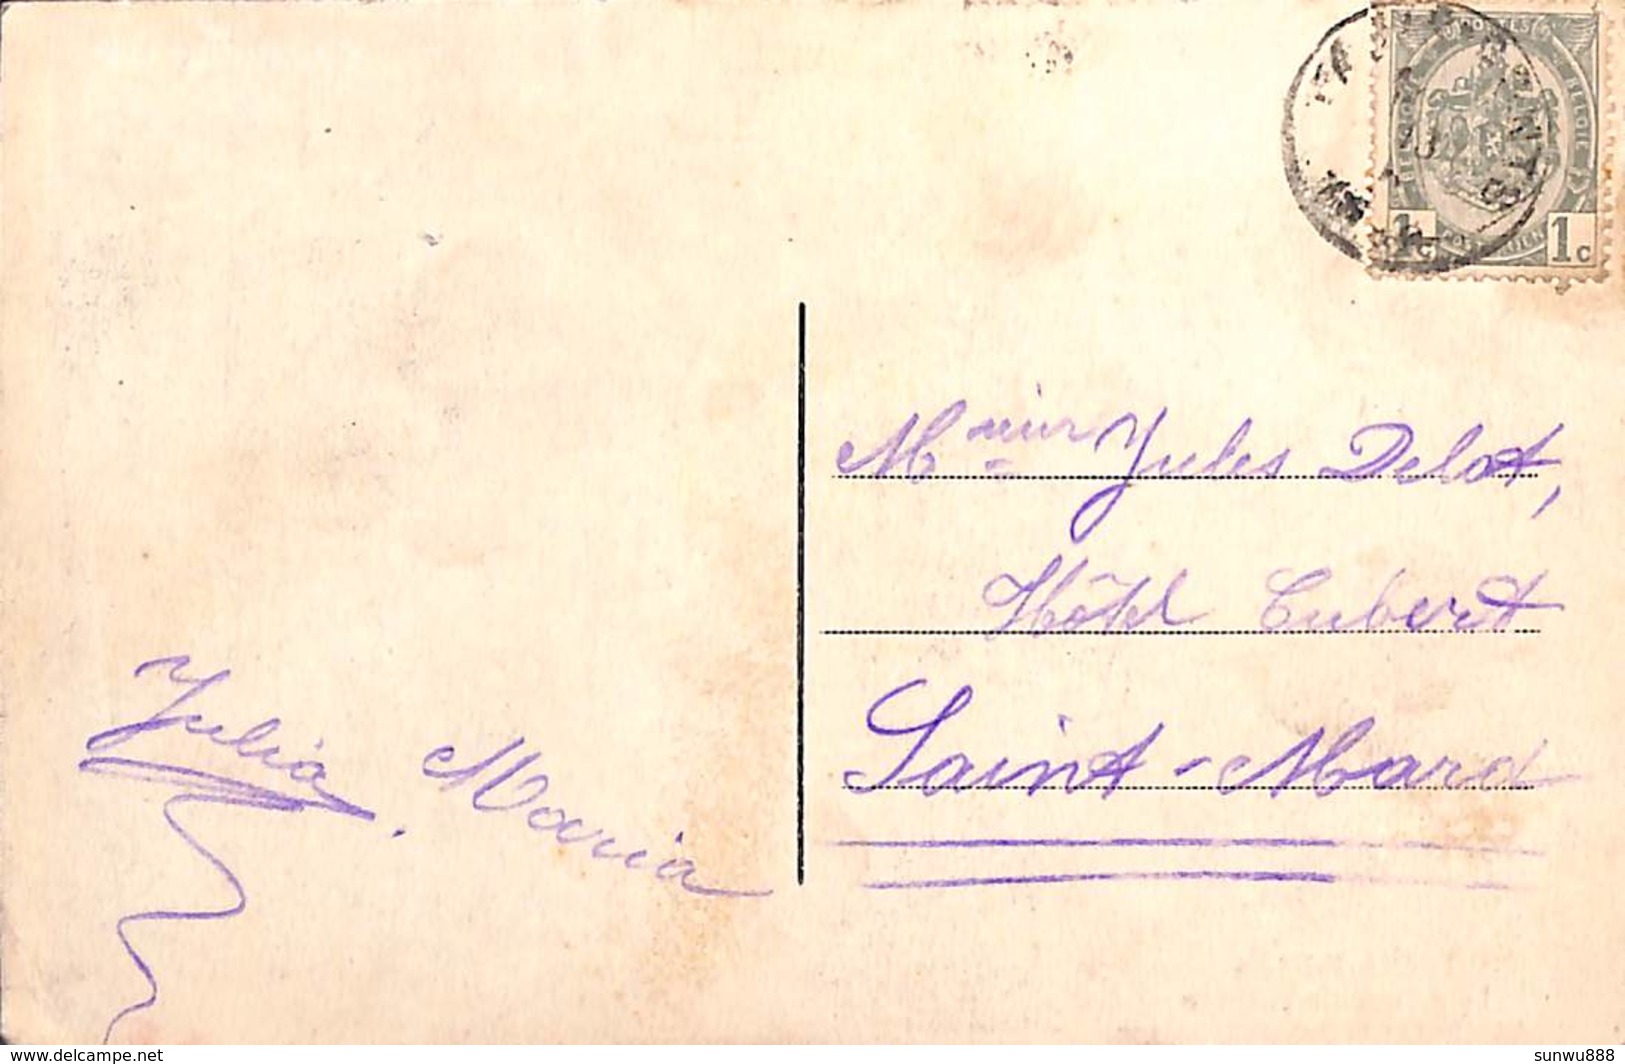 POSTES
BELGIE
1c 1c
Julia. Maria
Jules Delot,
Hôtel Cubert
Saint-Mard
www.delcampe.net
sunwu888